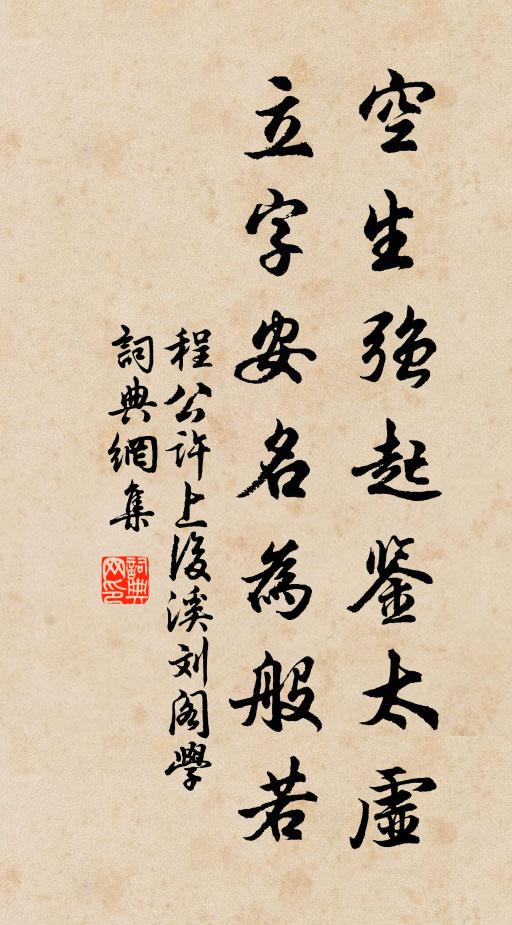 空生強起鉴太虛
立字安名為般若
程公許上後溪刘阁學
詞典網集
詞典网印